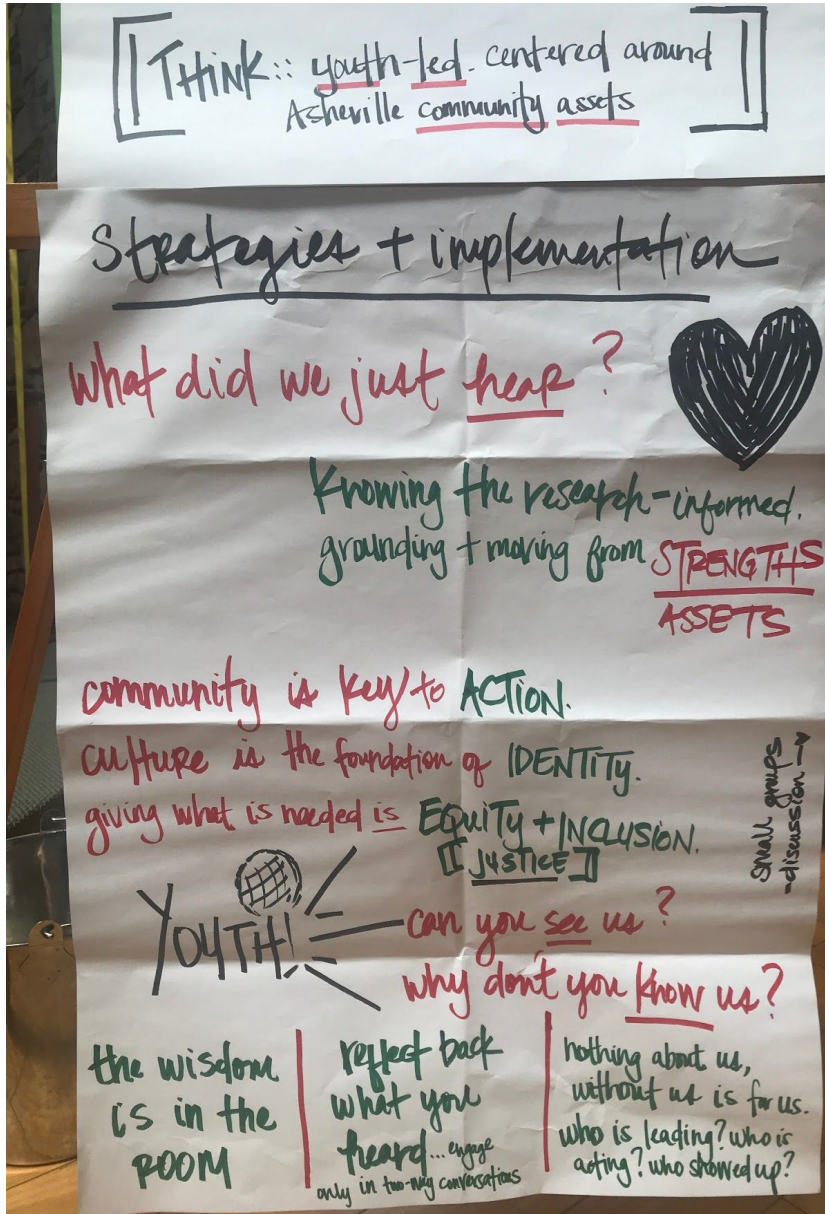 [THINK:: youth-led. centered around
Asheville community assets]
Strategies + implementation
what did we just hear?
Knowing the research-informed.
grounding + moving from STRENGTHS
ASSETS
community is key to ACTION.
culture is the foundation of IDENTITY.
giving what is needed is EQUITY + INCLUSION.
[[JUSTICE]]
small groups
-discussion→
YOUTH!
can you see us?
why don't you know us?
the wisdom
is in the
ROOM
reflect back
what you
heard...engage
only in two-way conversations
nothing about us,
without us is for us.
who is leading? who is
acting? who showed up?